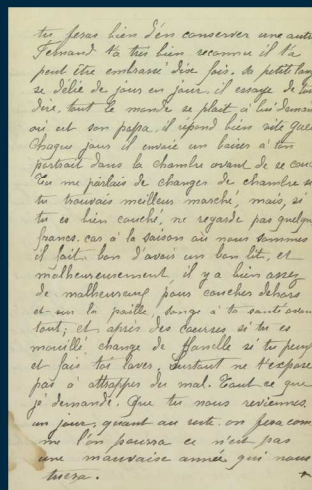 tu feras bien d'en conserver une autre
Fernand t'a très bien reconnu il t'a
peut être embrassé dix fois. Sa petite lang
se délie de jour en jour, il essaye de tou
dire, tout le monde se plait à lui deman
où est son papa, il répond bien vite
Chaque jour il envoie un baiser à ton
portrait dans la chambre avant de se couc
Tu me parlais de changer de chambre si
tu trouvais meilleur marché, mais, si
tu es bien couché, ne regarde pas quelqu
francs. car à la saison où nous sommes
il fait bon d'avoir un bon lit, et
malheureusement, il y a bien assez
de malheureux pour coucher dehors
et sur la paille, songe à ta santé avan
tout; et après des courses, si tu es
mouillé change de flanelle si tu peux
et fais toi laver, surtout ne t'expose
pas à attrapper du mal. Tout ce que
je demande. Que tu nous reviennes
un jour, quant au reste on fera com
me l'on pourra ce n'est pas
une mauvaise année qui nous
tuera.